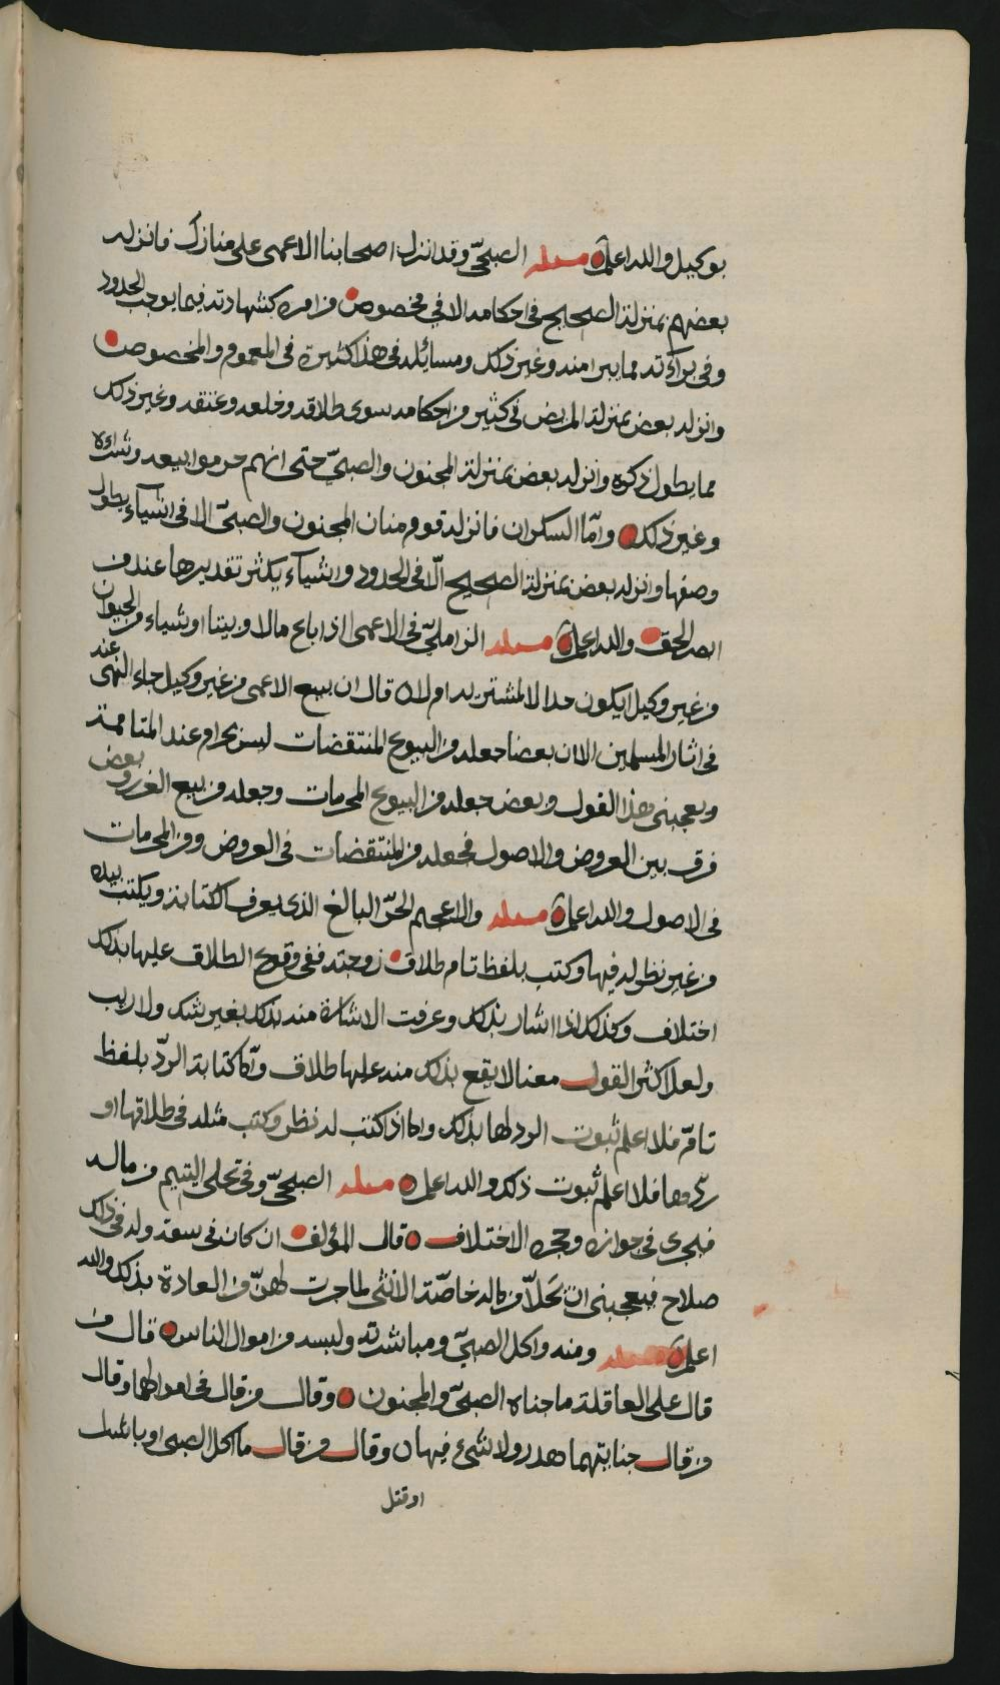 بوكيل والله اعلم مسئلة الصبحيّ وقد انزل اصحابنا الاعمى على منازل فانزله
بعضهم بمنزلة الصحيح في احكامه الا في مخصوص من امره كشهادته فيما يوجب الحدود
وفي براءته مما يبرا منه وغير ذلك ومسائله في هذا كثيرة في المعموم والمخصوص
وانزله بعض بمنزلة المريض في كثير من احكامه سوى طلاقه وخلعه وعتقه وغير ذلك
مما يطول ذكره وانزله بعض بمنزلة المجنون والصبيّ حتى انهم حرموا بيعه وشراءه
وغير ذلك وامّا السكران فانزله قوم منهم المجنون والصبيّ الا في اشياء يطول
وصفها وانزله بعض بمنزلة الصحيح الّا في الحدود واشياء يكثر تقديرها عند من
ابصر الحق والله اعلم مسئلة الزامليّ في الاعمى اذا باع مالا او بيتا او شياء من الحيوان
من غير وكيل ايكون حلالا لمشتريه ام لا قال ان بيع الاعمى من غير وكيل جاء النهي عنه
في اثار المسلمين الا ان بعضا جعله من البيوع المنتقضات ليس بحرام عند المتاممة
ويعجبني هذا القول وبعض جعله من البيوع المحرمات وجعله من بيع الغرر وبعض
فرق بين العروض والاصول فجعله من المنتقضات في العروض ومن المحرمات
في الاصول والله اعلم مسئلة والاعجم الحرّ البالغ الذي يعرف الكتابة ويكتب بيده
من غير نظر له فيها وكتب بلفظ تام طلاق زوجته ففي وقوع الطلاق عليها بذلك
اختلاف وكذلك اذا اشار بذلك وعرفت الاشارة منه بذلك بغير شك ولا ريب
ولعل اكثر القول معنا لا يقع بذلك منه عليها طلاق وامّا كتابة الردّ بلفظ
تامّ فلا اعلم ثبوت الرد لها بذلك واما اذا كتب له نظر وكتب مثله في طلاقها او
ردها فلا اعلم ثبوت ذلك والله اعلم مسئلة الصبحيّ وفي تحلي اليتيم من ماله
فيجرى في جوازه وحجره الاختلاف قال المؤلف ان كان في سعة وله في ذلك
صلاح فيعجبني ان يَحَلاّ من ماله خاصّة الانثى لما جرت لهنّ من العادة بذلك والله
اعلم مسئلة ومنه واكل الصبيّ ومباشرته ولبسه من اموال الناس قال من
قال على العاقلة ما جناه الصبيّ والمجنون وقال من قال في اموالهما وقال
من قال جنايتهما هدر ولا شيء فيها وقال من قال ما اكل الصبي او باشر
او قتل